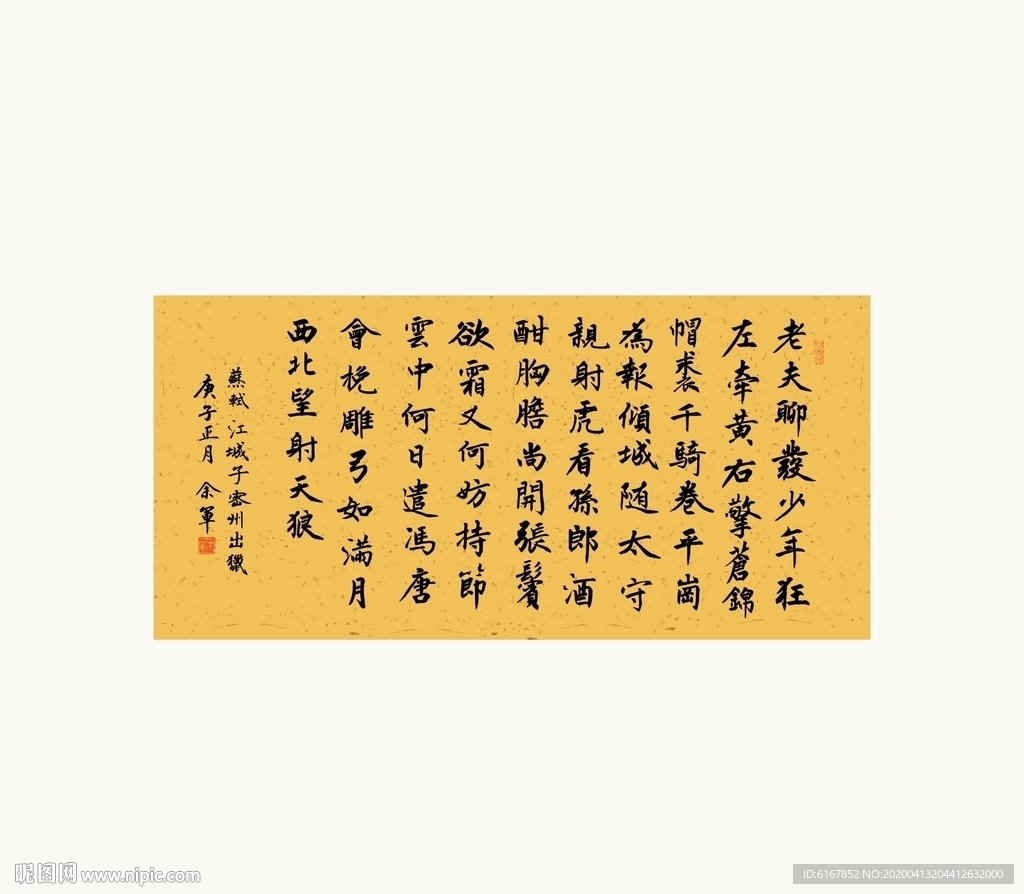 老夫聊發少年狂
左牽黄右擎蒼錦
帽裘千騎卷平崗
為報傾城随太守
親射虎看孫郎酒
酣胸膽尚開張鬢
欲霜又何妨持節
雲中何日遣馮唐
會挽雕弓如满月
西北望射天狼
蘇軾 江城子密州出獵
庚子正月 余軍
昵图网 www.nipic.com
ID:6167852 NO:20200413204412632000